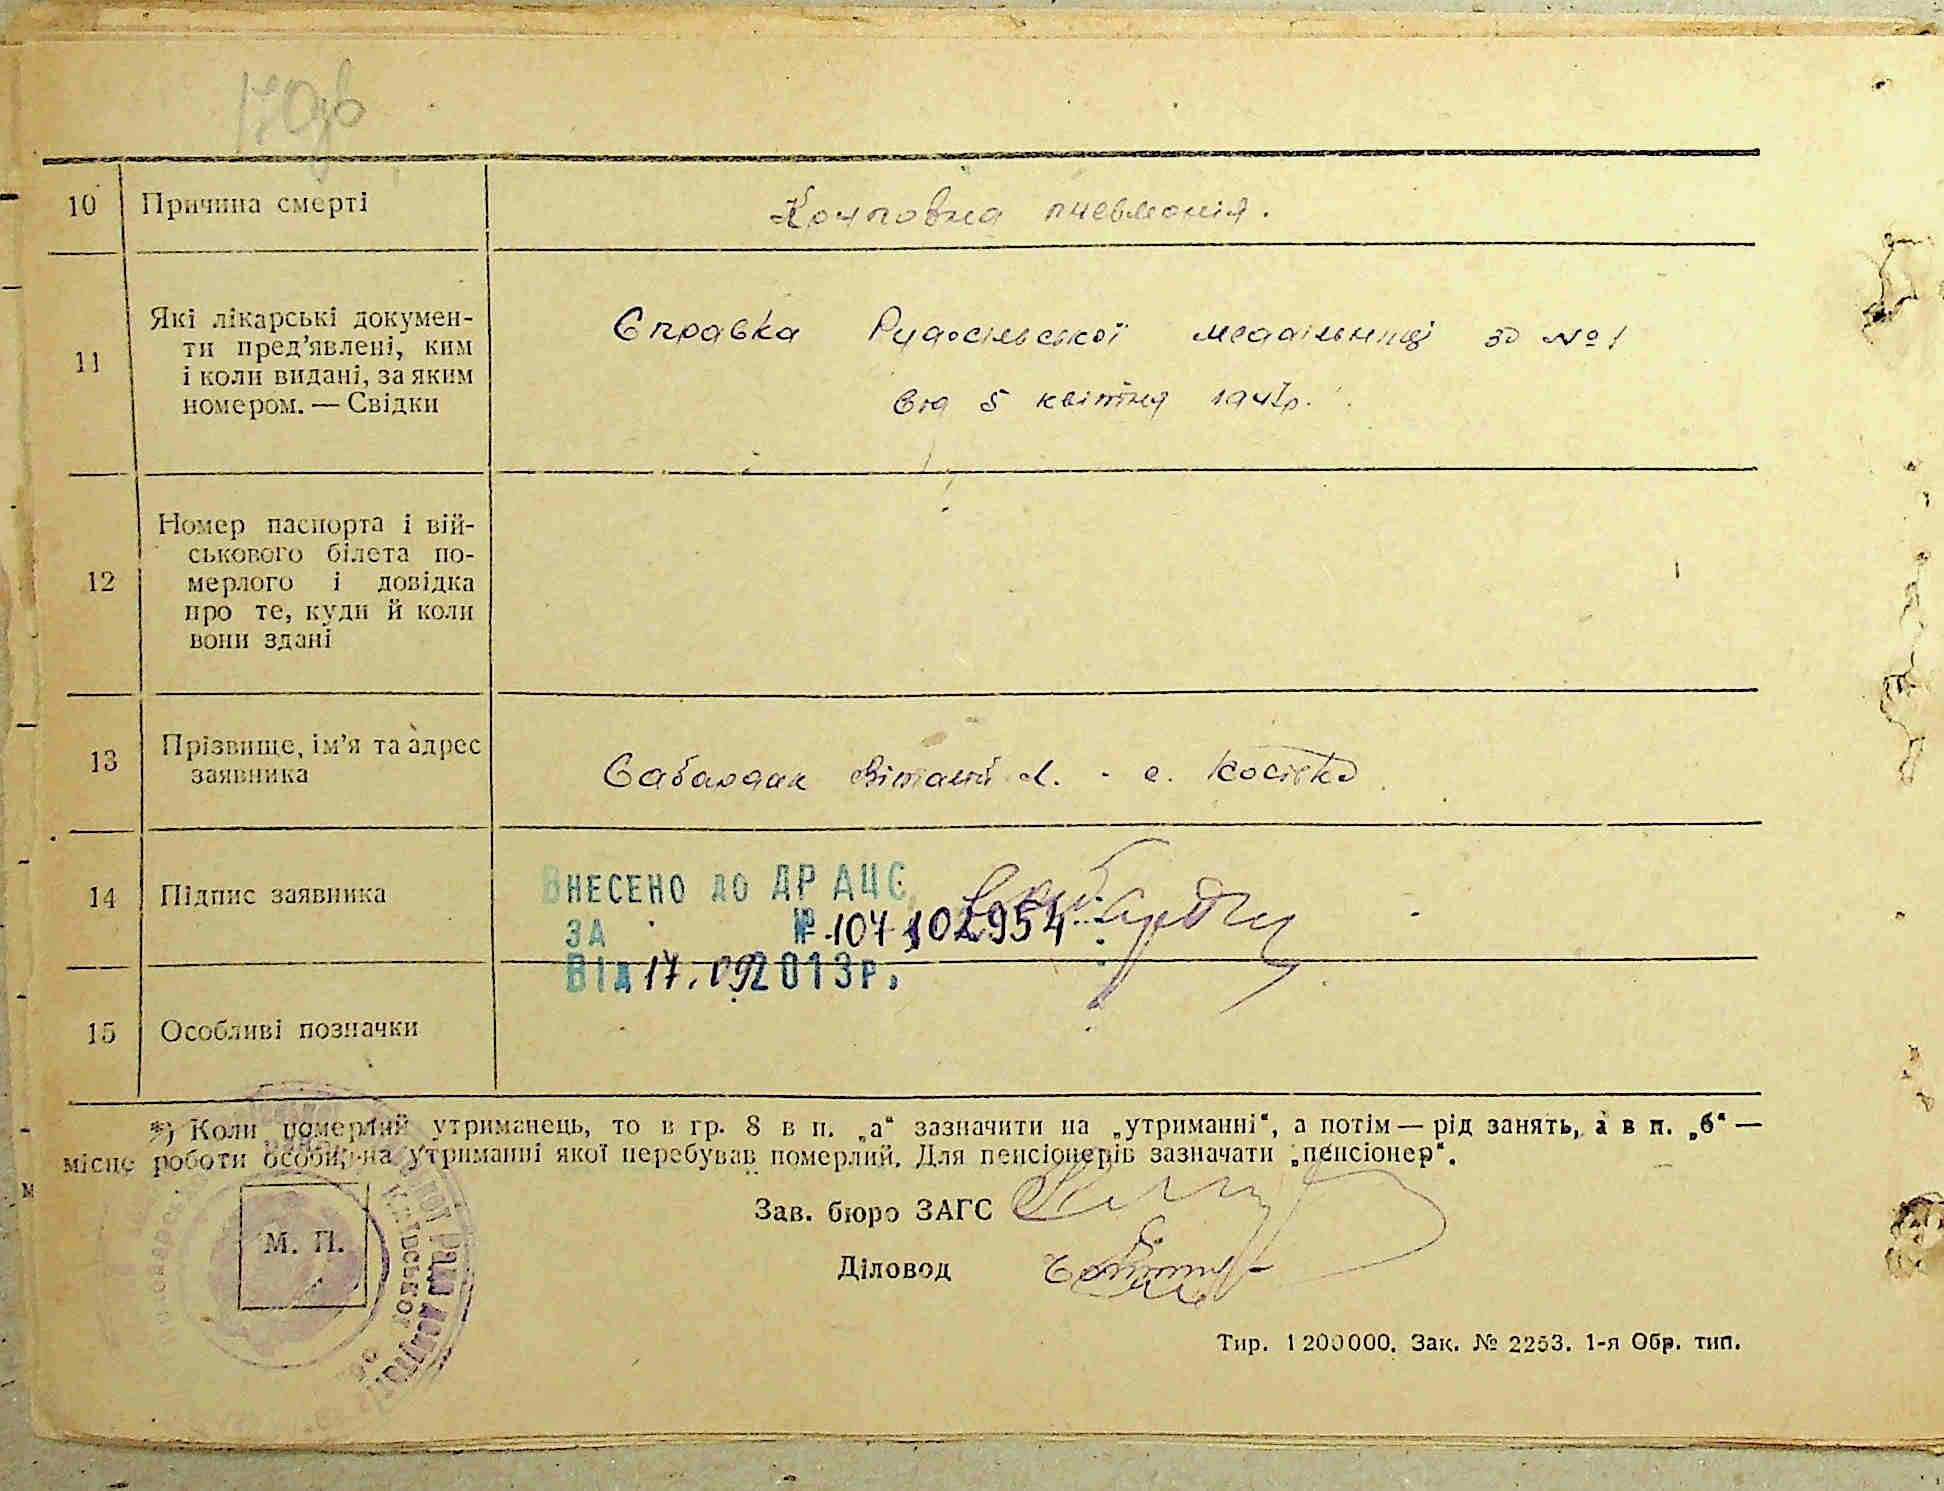 170зв
10 Причина смерті
Крупозна пневмонія.
11 Які лікарські докумен-
ти пред’явлені, ким
і коли видані, за яким
номером. — Свідки
Справка Рудосільської меддільниці за № 1
від 5 квітня 1947р.
12 Номер паспорта і вій-
ськового білета по-
мерлого і довідка
про те, куди й коли
вони здані
13 Прізвище, ім’я та адрес
заявника
Сабардак Віталій . с. Косівка
14 Підпис заявника
ВНЕСЕНО ДО ДР АЦС
ЗА № 107 102954
ВІД 17.09 2013 р.
15 Особливі позначки
*) Коли померлий утриманець, то в гр. 8 в п. „а“ зазначити на „утриманні“, а потім — рід занять, а в п. „б“ —
місце роботи особи, на утриманні якої перебував померлий. Для пенсіонерів зазначати „пенсіонер“.
Зав. бюро ЗАГС
М. П.
Діловод
Тир. 1200000. Зак. № 2253. 1-я Обр. тип.